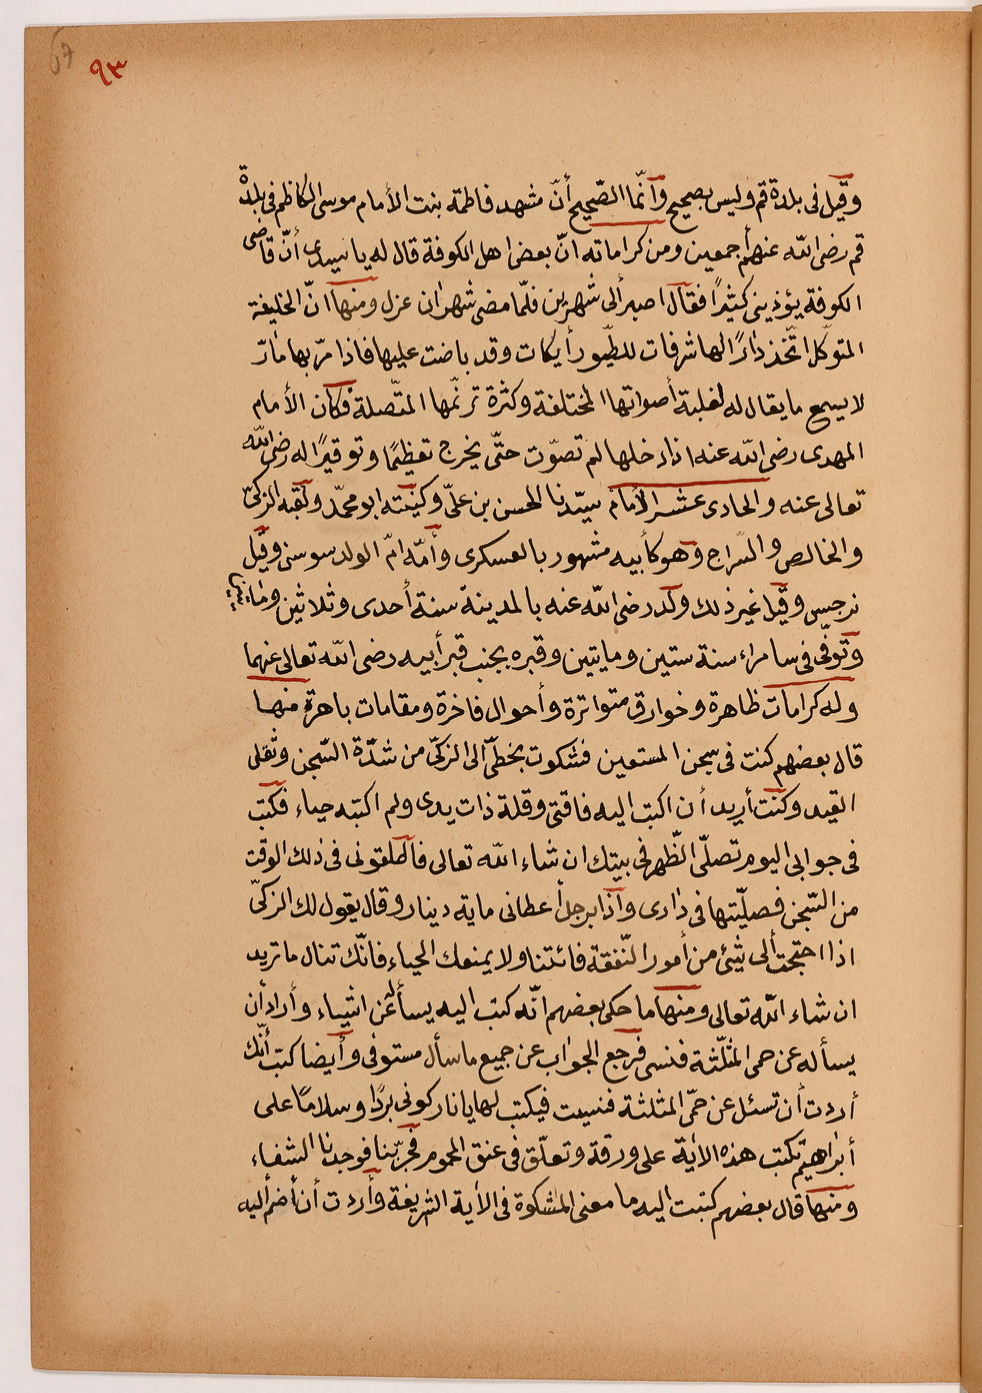 ٩٣
وقيل فى بلدة قم وليس بصحيح وأنّما الصّحيح أنّ مشهد فاطمة بنت الأمام موسى الكاظم فى بلدة
قم رضى الله عنهم أجمعين ومن كراماته انّ بعض اهل الكوفة قال له يا سيدى أنّ قاضى
الكوفة يؤذينى كثيرًا فقال اصبر ألى شهرين فلمّا مضى شهران عزل ومنها انّ الخليفة
المتوكل اتّخذ دارًا لها شرفات للطّيور أيكات وقد باضت عليها فاذا مرّ بها مارّ
لا يسمع ما يقال له لغلبة أصواتها المختلفة وكثرة ترنّمها المتّصلة فكان الأمام
المهدى رضى الله عنه اذا دخلها لم تصوّت حتّى يخرج تعظيمًا وتوقيرًا له رضى الله
تعالى عنه والحادى عشر الأمام سيّدنا الحسن بن علىّ وكنيته ابو محمّد ولقبه الزكىّ
والخالص والسّراج وهو كأبيه مشهور بالعسكرى وأمّه امّ الولد سوسن وقيل
نرجس وقيل غير ذلك ولد رضى الله عنه بالمدينة سنة أحدى وثلاثين ومايتين
وتوفّى فى سامراء سنة ستين ومايتين وقبره بجنب قبر أبيه رضى الله تعالى عنهما
وله كرامات ظاهرة وخوارق متواترة وأحوال فاخرة ومقامات باهرة منها
قال بعضهم كنت فى سجن المستعين فشكوت بخطّى الى الزكىّ من شدّة السّجن وثقلى
القيد وكنت أريد أن اكتب اليه فاقتى وقلة ذات يدى ولم اكتبه حياء فكتب
فى جوابى اليوم تصلّى الظّهر فى بيتك ان شاء الله تعالى فأطلقونى فى ذلك الوقت
من السّجن فصلّيتها فى دارى وأذا برجل أعطانى ماية دينار وقال يقول لك الزكىّ
اذا احتجت ألى شئ من أمور النّفقة فائتنا ولا يمنعك الحياء فانّك تنال ما تريد
ان شاء الله تعالى ومنها ما حكى بعضهم انّه كتب اليه يسأله عن اشياء وأراد أن
يسأله عن حمى المثلّثة فنسى فرجع الجواب عن جميع ما سأل مستوفى وأيضا كتب أنّك
أردت أن تسئل عن حمّى المثلثة فنسيت فيكتب لها يا نار كونى بردًا وسلامًا على
أبراهيم تكتب هذه الأية على ورقة وتعلّق فى عنق المحموم فجرّبنا فوجدنا الشفاء
ومنها قال بعضهم كتبت اليه ما معنى المشكوة فى الأية الشريفة وأردت أن أضم أليه